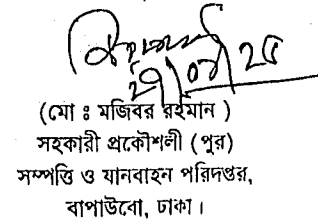 (মো ঃ মজিবর রহমান )
সহকারী প্রকৌশলী (পুর)
সম্পত্তি ও যানবাহন পরিদপ্তর,
বাপাউবো, ঢাকা।